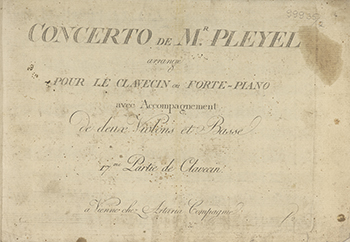 CONCERTO DE M.R PLEYEL
arrangé
POUR LE CLAVECIN ou FORTE-PIANO
avec Accompagnement
de deux Violons et Basse
17.me Partie de Clavecin
à Vienne chez Artaria Compagnie